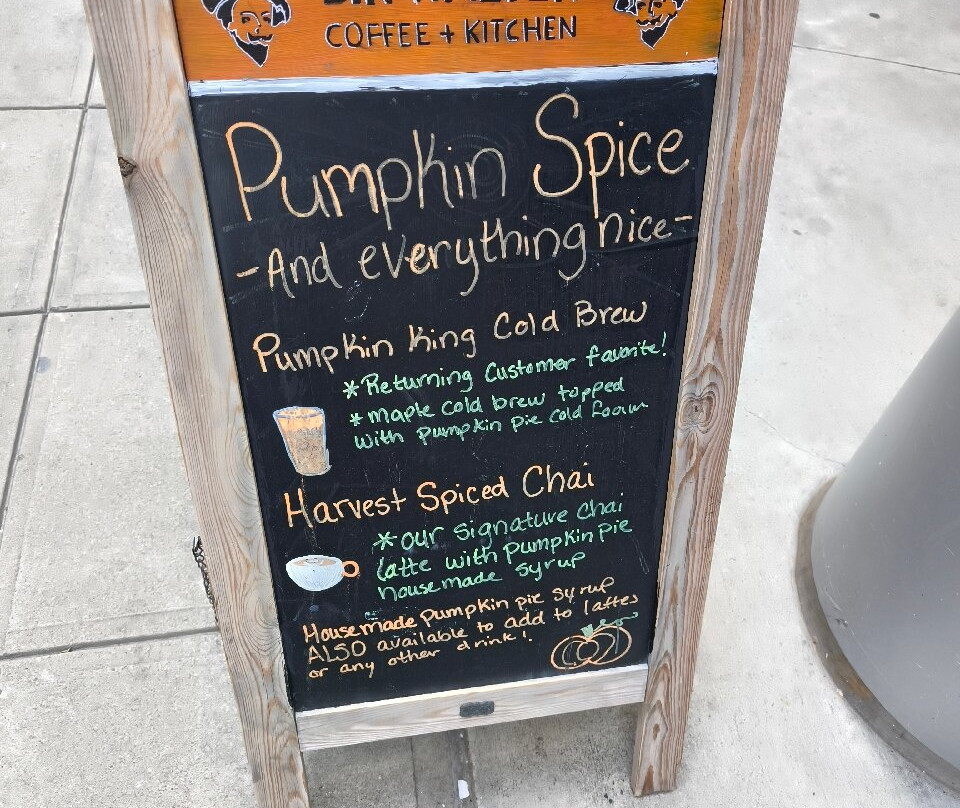 COFFEE + KITCHEN
Pumpkin Spice
-And everything nice-
Pumpkin King Cold Brew
*Returning Customer favorite!
*maple cold brew topped
with pumpkin pie cold foam
Harvest Spiced Chai
*our signature chai
latte with pumpkin pie
housemade syrup
Housemade pumpkin pie syrup
ALSO available to add to lattes
or any other drink!